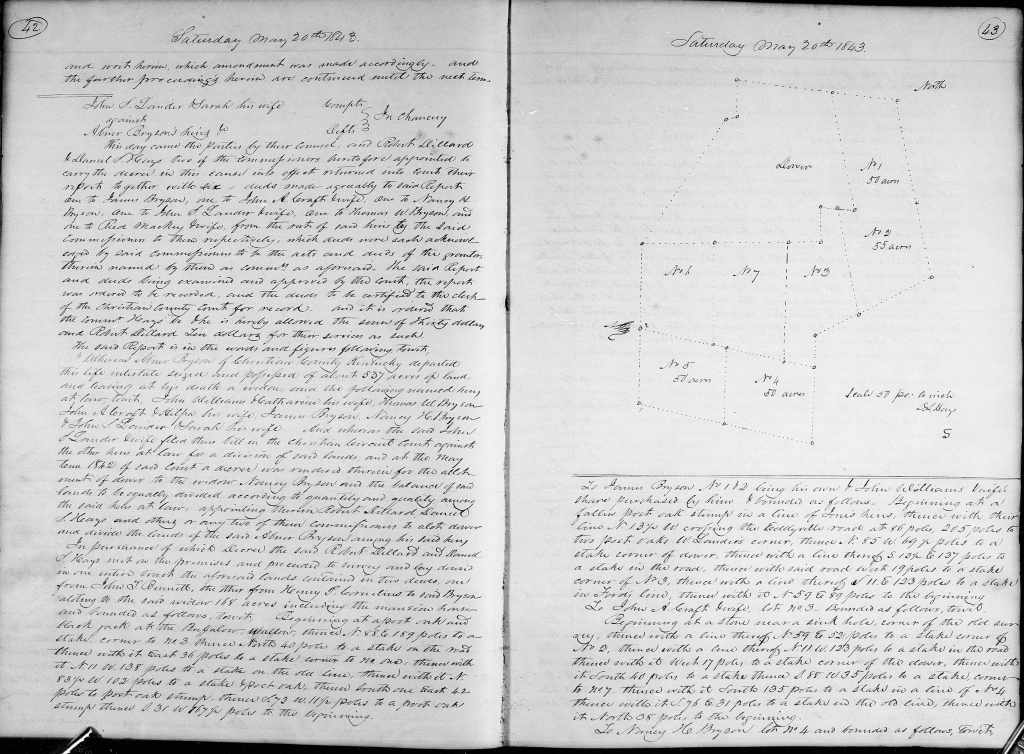 42
Saturday May 20th 1843.
and writ herein, which amendment was made accordingly. and
the further proceedings herein are continued until the next term.
John S. Lander & Sarah his wife Complts
against In Chancery
Abner Bryson's heirs &c Defts
This day came the parties by their counsel, and Robert Dillard
& Daniel S. Hays two of the commissioners heretofore appointed to
carry the decree in this cause into effect returned into court their
report together with six deeds made agreeably to said Report
one to James Bryson, one to John A. Craft & wife, one to Nancy H.
Bryson, one to John S. Lander & wife, one to Thomas W. Bryson, and
one to Mackey & wife, from the rest of said heirs by the said
commissioners to them respectively, which deeds were each acknowl
edged by said commissioners to be the acts and deeds of the grantors
therein named by them as comrs as aforesaid. The said Report
and deeds being examined and approved by the Court, the report
was ordered to be recorded, and the deeds to be certified to the clerk
of the Christian County Court for record. and it is ordered that
the Hays be & he is hereby allowed the sum of thirty dollars
and Robert Dillard ten dollars for their services as such
The said Report is in the words and figures following towit,
Whereas Abner Bryson of Christian County Kentucky departed
this life intestate seized and possessed of about 537 acres of land
and leaving at his death a widow, and the following named heirs
at law, towit, John Williams & Catharine his wife, Thomas W. Bryson
John A. Craft & his wife, James Bryson, Nancy H. Bryson
& John S. Lander & Sarah his wife. And whereas the said John
S Lander & wife filed their bill in the Christian Circuit Court against
the other heirs at law for a division of said lands, and at the May
term 1842 of said Court a decree was rendered therein for the allot
ment of dower to the widow Nancy Bryson and the balance of said
lands to be equally divided according to quantity and quality among
the said heirs at law; appointing therein Robert Dillard Daniel
S. Hays and others or any two of them commissioners to allot dower
and divide the lands of the said Abner Bryson among his said heirs
In pursuance of which Decree the said Robert Dillard and Daniel
S Hays met on the premises and proceeded to survey and lay down
in one entire tract the aforesaid lands contained in two deeds, one
from John F. Bennett, the other from Henry F. Cornelius to said Bryson
alloting to the said widow 188 acres including the mansion house
and bounded as follows, towit. Beginning at a post oak and
black jack at the Buffalow wallow, thence N. 88 E 189 poles to a
stake corner to no 3 thence North 40 poles to a stake on the road
thence with it East 36 poles to a stake corner to no one, thence with
it N 11 W. 138 poles to a stake on the old line, thence with it N.
83½ W 102 poles to a stake & post oak, thence South one East 42
poles to post oak stump, thence S. 73 W. 11½ poles to a post oak
stump thence S 31 W 167½ poles to the beginning.
43
Saturday May 20th 1843.
North
Dower
No 1
50 acres
No 2
55 acres
No 6
No 7
No 3
No 5
50 acres
No 4
50 acres
Scale 50 ps. to inch
D S Hays
S
To James Bryson, No 1 & 2 being his own & John Williams & wife's
share purchased by him & bounded as follows. Beginning at a
fallen post oak stump in a line of heirs, thence with their
line N 13½ W crossing the Eddyville road at 86 poles, 205 poles to
two post oaks W Landers corner, thence N. 85 W 69½ poles to a
stake corner of dower, thence with a line thereof S 13½ E 137 poles to
a stake in the road, thence with said road West 19 poles to a stake
corner of No 3, thence with a line thereof S 11 E 123 poles to a stake
in line, thence with it N 59 E 89 poles to the beginning
To John A. Craft & wife, lot no 3. Bounded as follows, towit
Beginning at a stone near a sink hole, corner of the old sur
vey, thence with a line thereof N 59 E 52 poles to a stake corner of
No 2, thence with a line thereof N 11 W. 123 poles to a stake in the road
thence with it West 17 poles to a stake corner of the dower, thence with
it South 40 poles to a stake thence S 88 W 35 poles to a stake, corner
to no 7, thence with it South 135 poles to a stake in a line of No 4
thence with it S 76 E 31 poles to a stake in the old line, thence with
it North 38 poles to the beginning.
To Nancy H. Bryson lot No 4 and bounded as follows, towit,